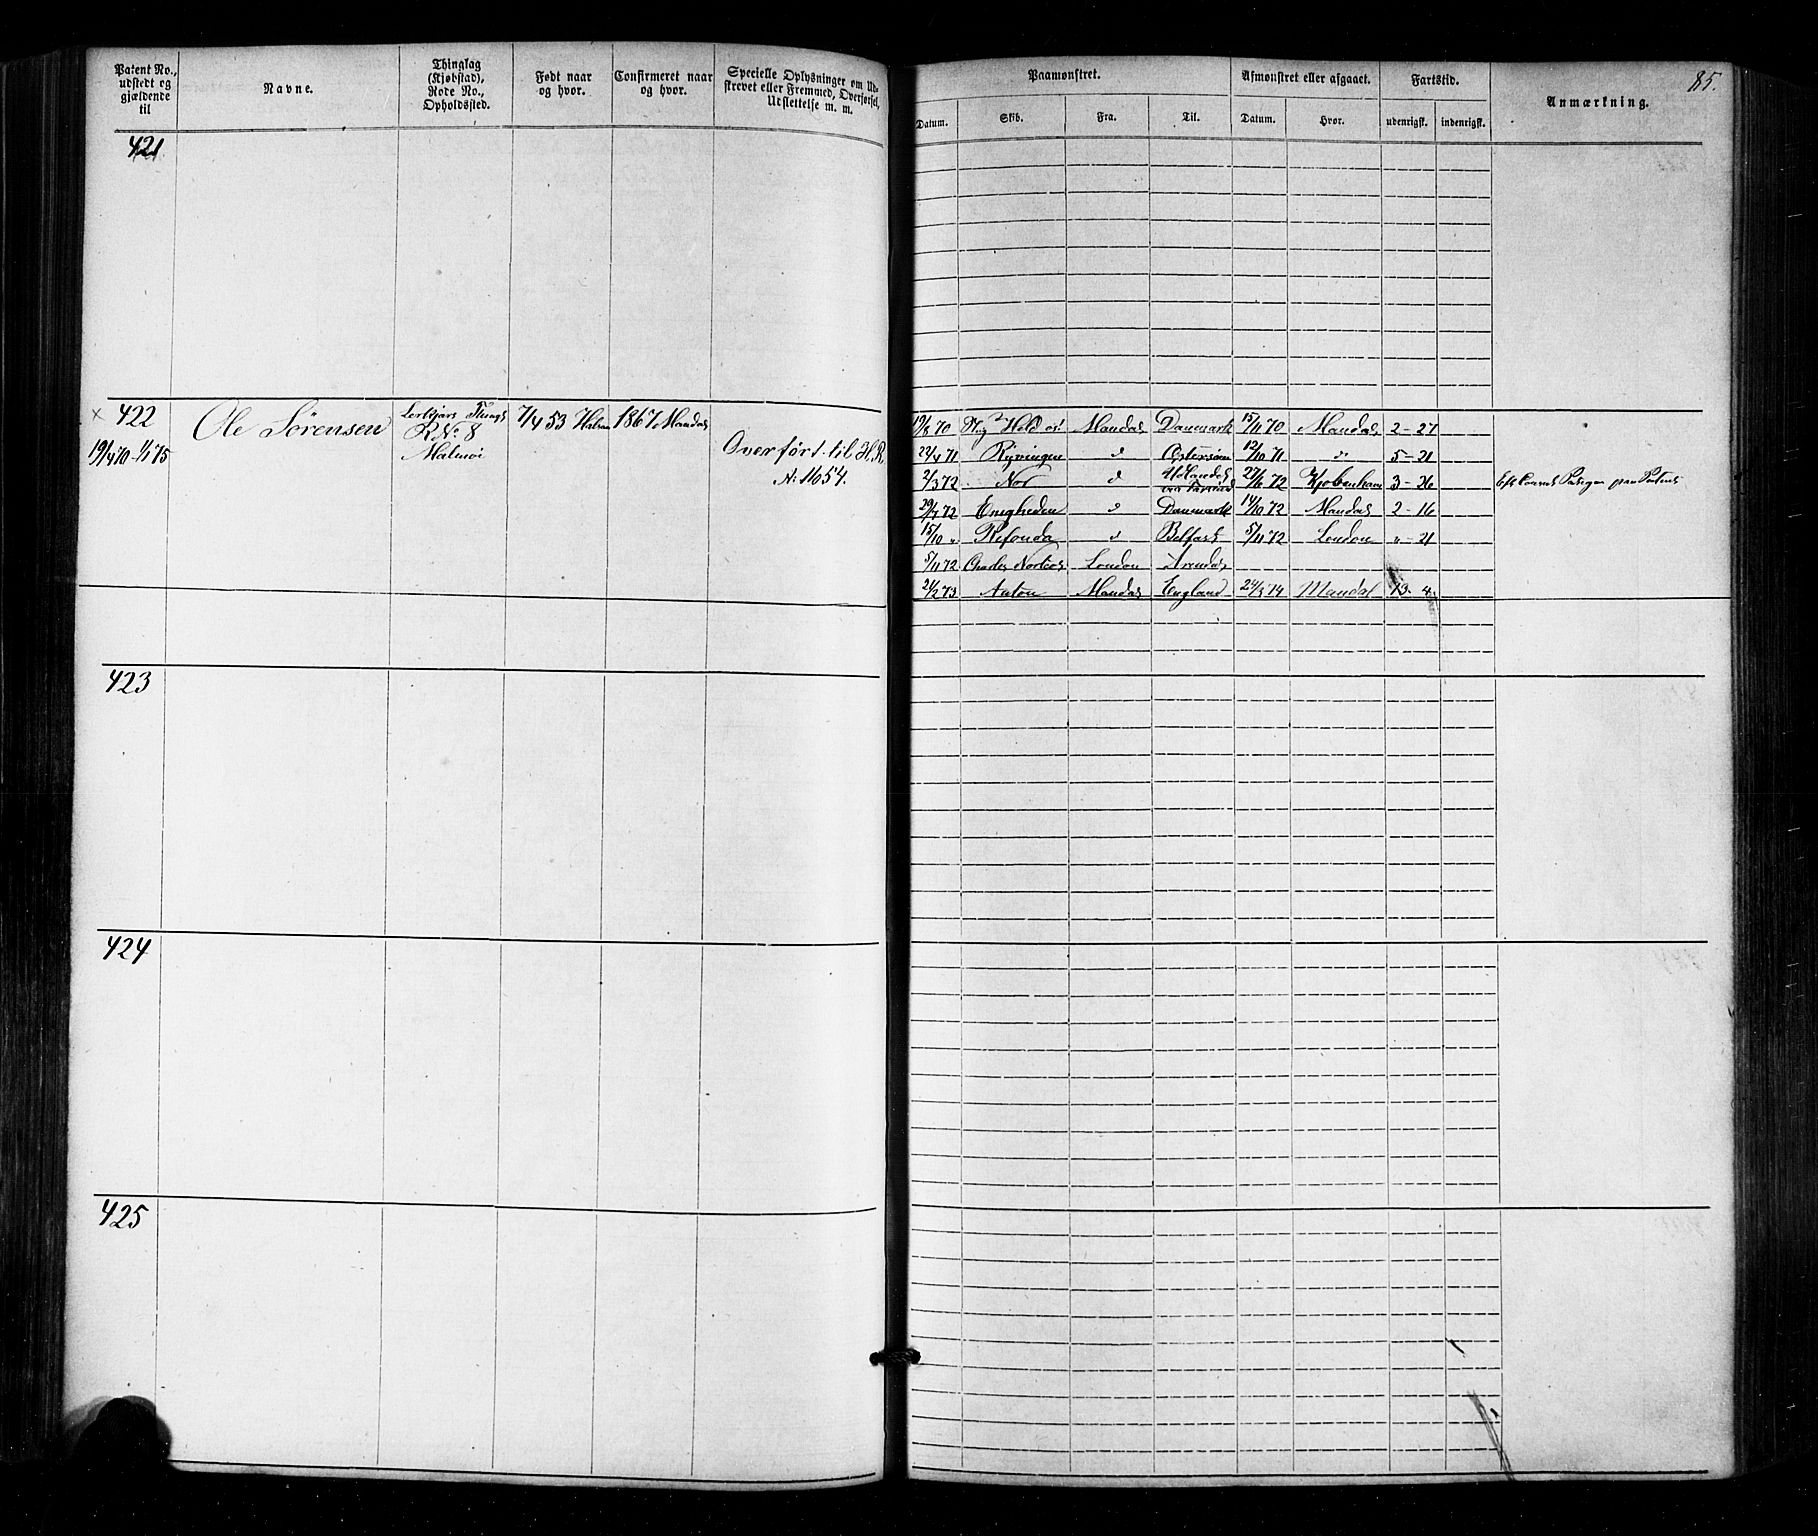 Patent No., udstedt og gjældende til
Navne.
Thinglag (Kjøbstad), Rode No., Opholdssted.
Født naar og hvor.
Confirmeret naar og hvor.
Specielle Oplysninger om Udskrevet eller Fremmed, Overførsel, Udslettelse m. m.
Paamønstret.
Afmønstret eller afgaaet.
Fartstid.
Anmærkning.
85.
Datum. Skib. Fra. Til. Datum. Hvor. udenrigsk. indenrigsk.
421
422
19/4 70 - 1/1 75
Ole Sørensen
R No 8
Malmø
7/4 53 Halsaa
1867 Mandal
Overført til H.R.
No 11054.
19/8 70 Mandal Danmark 15/11 70 Mandal 2-27
22/4 71 Ryvingen " Østersøen 12/10 71 " 5-21
2/3 72 Nor " 27/6 72 Kjøbenhavn 3-26
29/7 72 Enigheden " Danmark 14/10 72 Mandal 2-16
15/10 " Refonda " Belfast 5/11 72 London "-21
5/11 72 Charles London Arendal
24/2 73 Anton Mandal England 24/3 74 Mandal 13-4
423
424
425